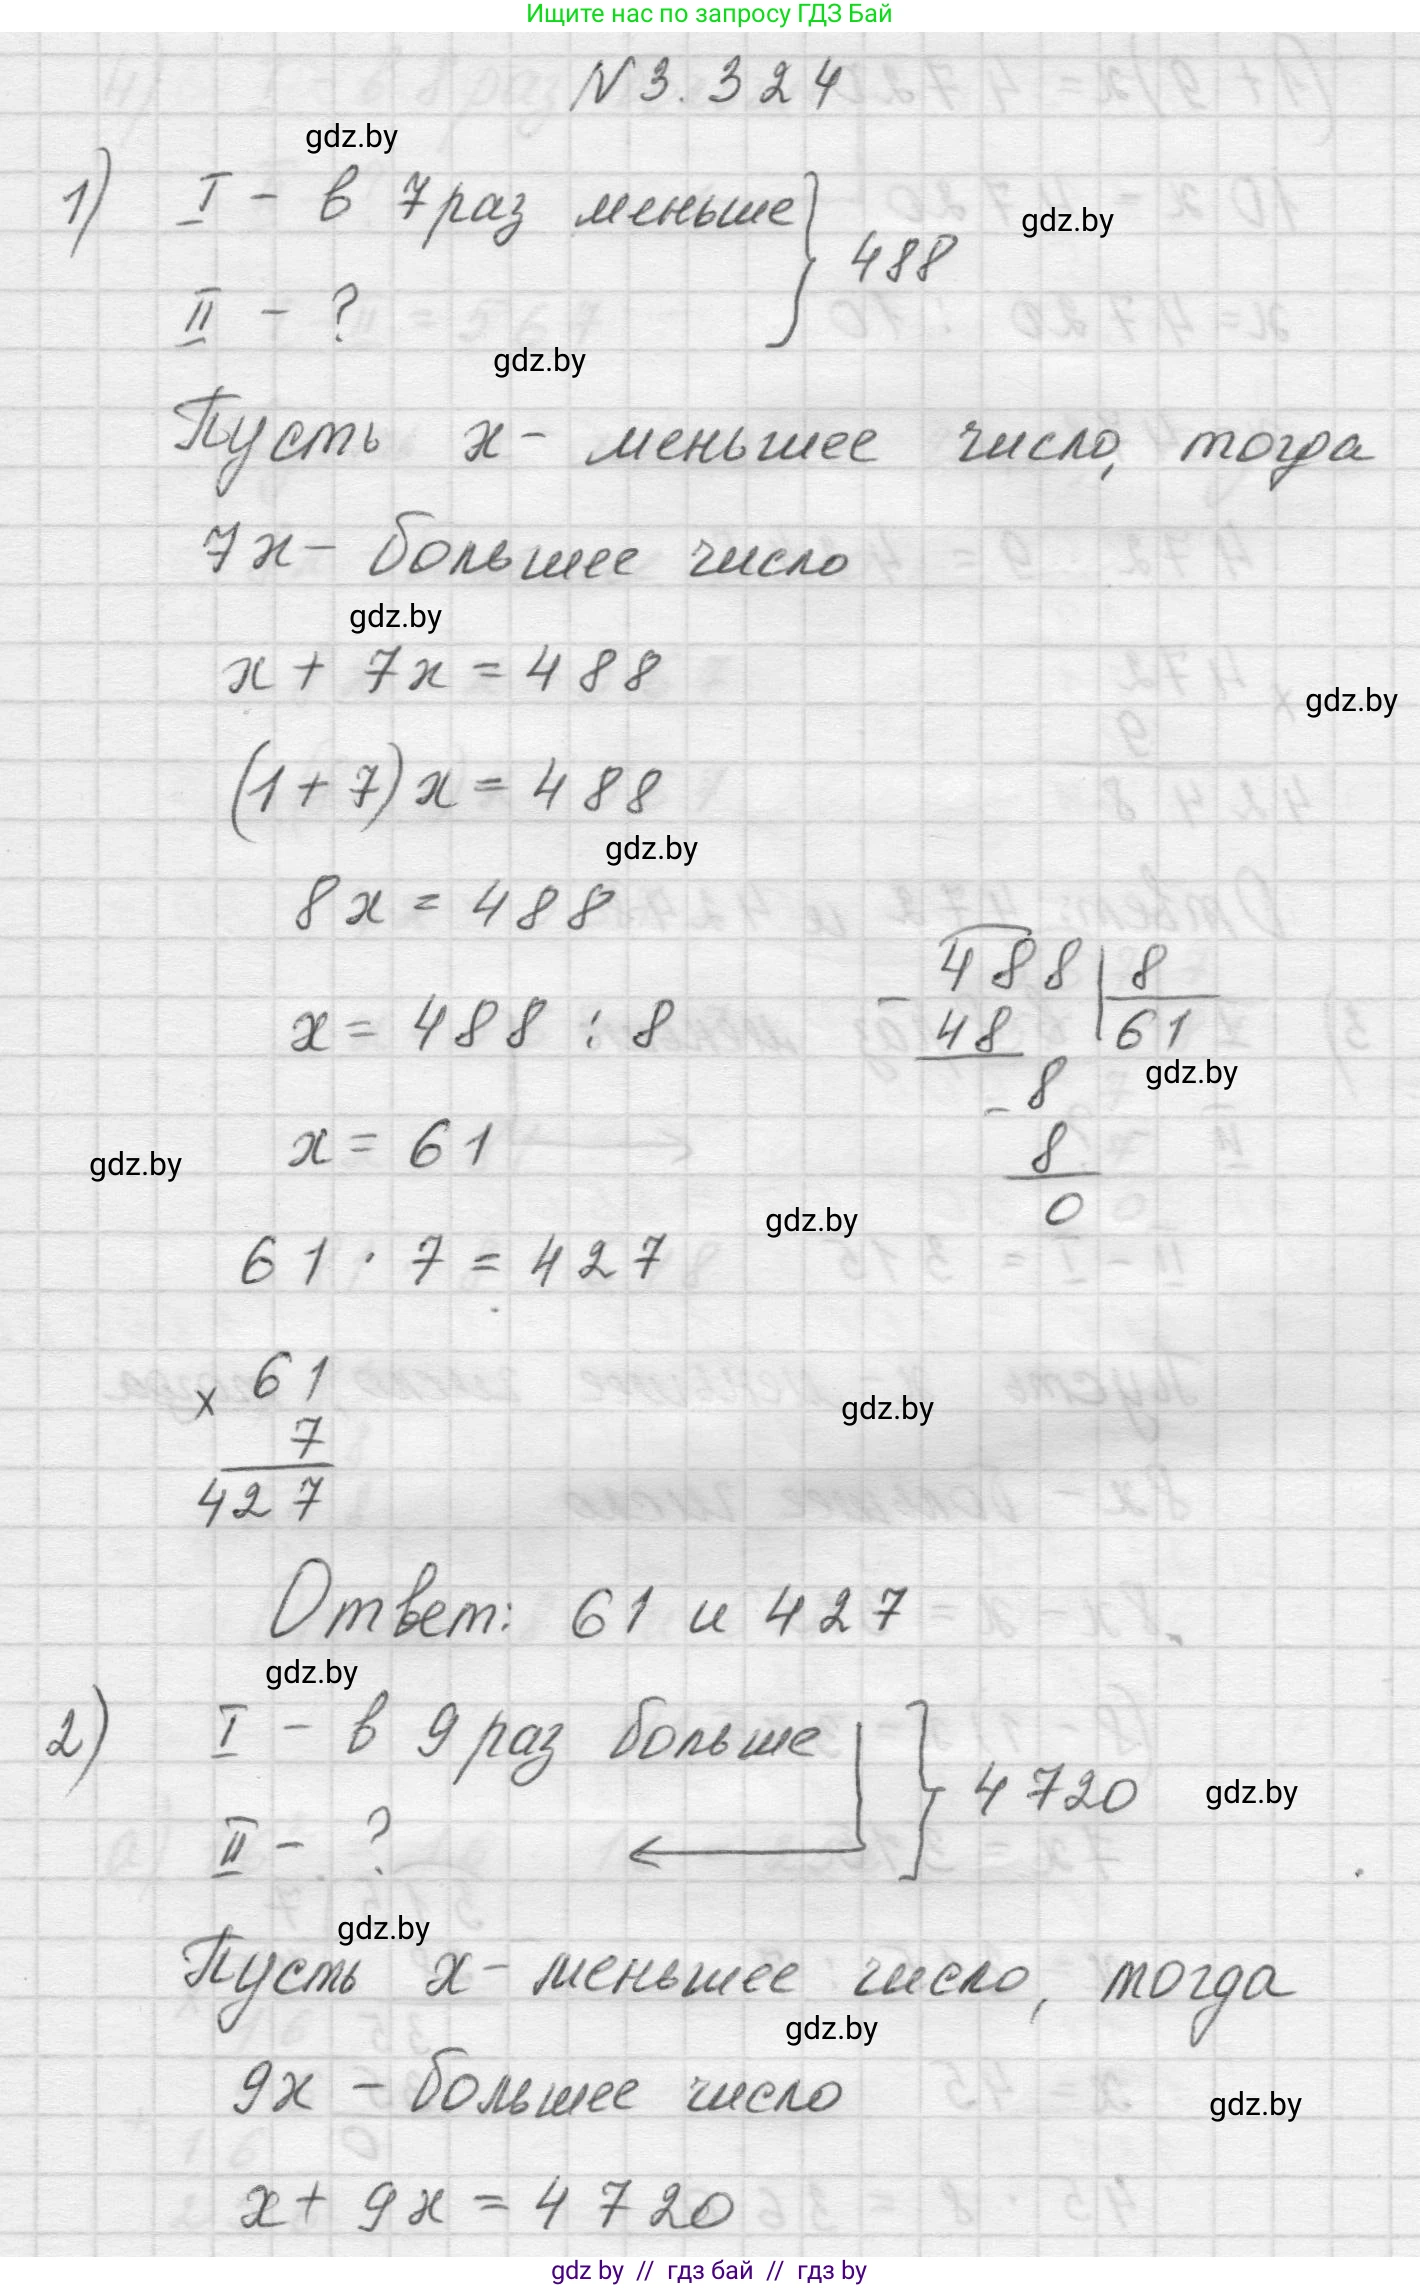 Ищите нас по запросу ГДЗ Бай
N 3. 324
gdz.by
1) I - в 7 раз меньше } 488
gdz.by
II - ?
gdz.by
Пусть x - меньшее число, тогда
7x - большее число
gdz.by
x + 7x = 488
gdz.by
(1 + 7) x = 488
gdz.by
8x = 488
488 | 8
x = 488 : 8
- 48 61
gdz.by
- 8
x = 61
8
gdz.by
0
gdz.by
61 · 7 = 427
x 61
gdz.by
7
427
Ответ: 61 и 427
gdz.by
2) I - в 9 раз больше } 4720
gdz.by
II - ?
gdz.by
Пусть x - меньшее число, тогда
gdz.by
9x - большее число
gdz.by
x + 9x = 4720
gdz by // гдз бай // гдз by